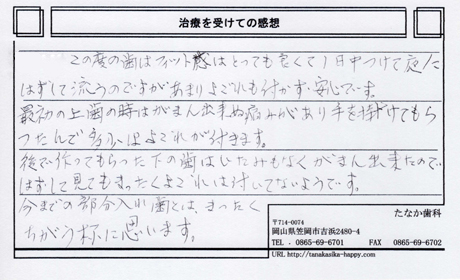 治療を受けての感想
この度の歯はフィット感はとっても良くて1日中つけて夜に
はずして洗うのですがあまりよごれも付かず安心です。
最初の上歯の時はがまん出来ぬ痛みがあり手を掛けてもら
ったんで多少はよごれが付きます。
後で作ってもらった下の歯はいたみもなくがまん出来たので
はずして見てもまったくよごれは付いてないようです。
今までの部分入れ歯とは、まったく
ちがう様に思います。
たなか歯科
〒714-0074
岡山県笠岡市吉浜2480-4
TEL 0865-69-6701 FAX 0865-69-6702
URL http://tanakasika-happy.com